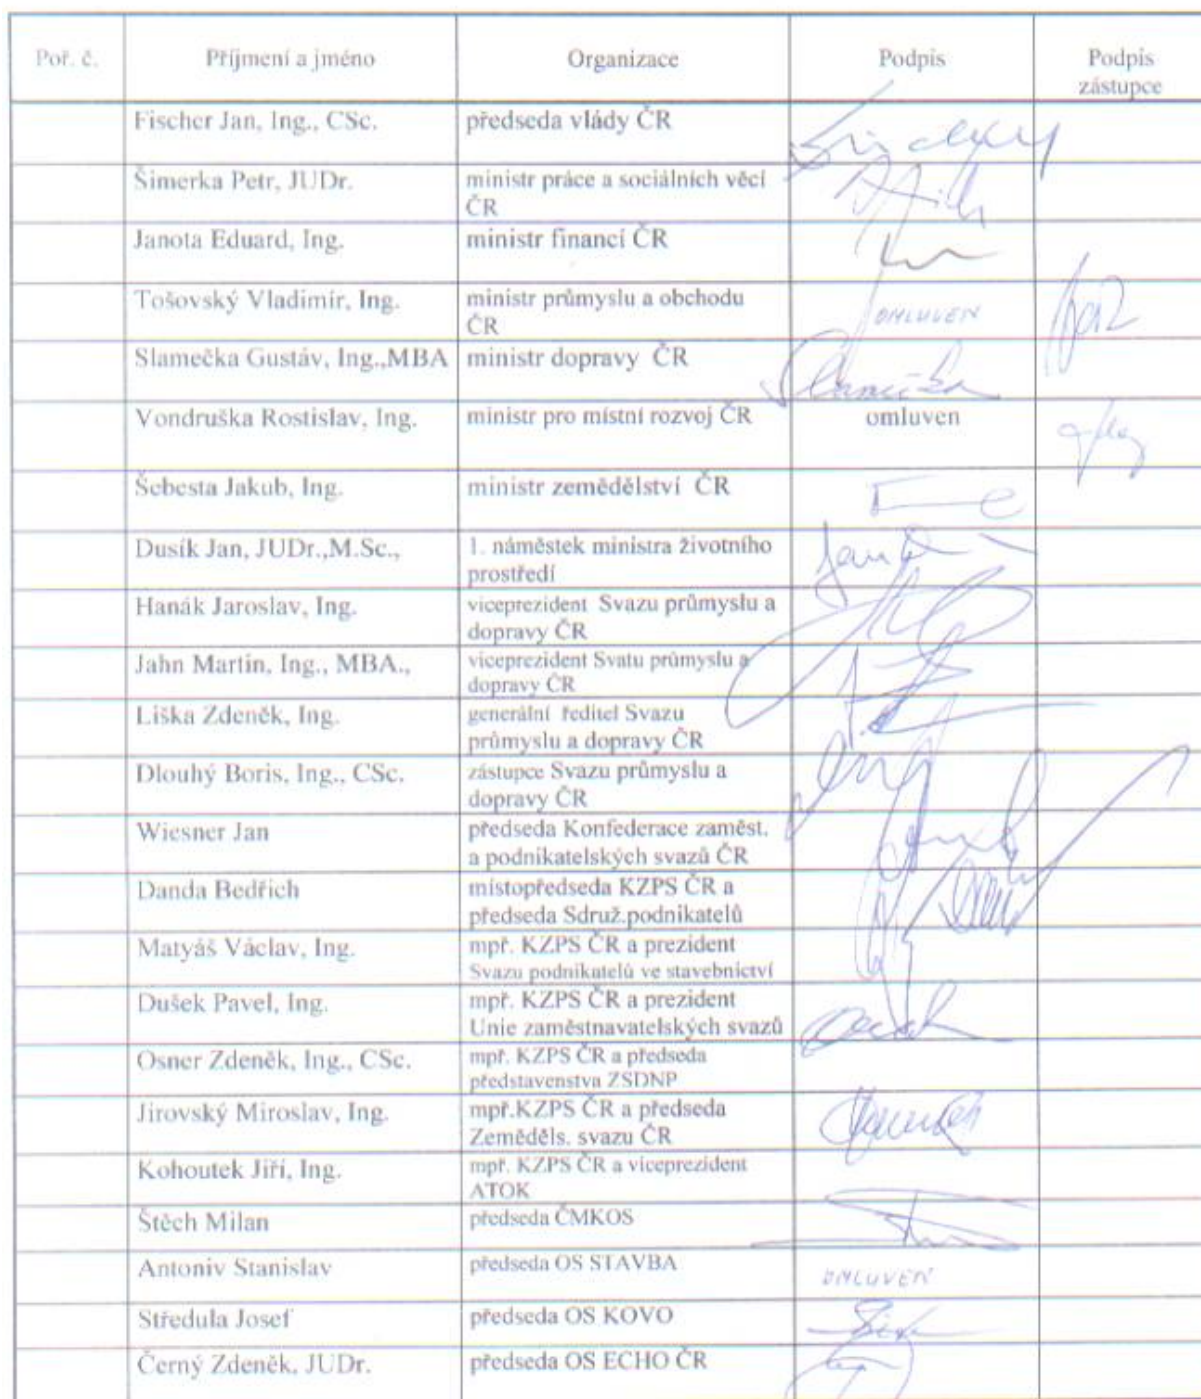 Poř. č. Příjmení a jméno Organizace Podpis Podpis
zástupce
Fischer Jan, Ing., CSc. předseda vlády ČR
Šimerka Petr, JUDr. ministr práce a sociálních věcí
ČR
Janota Eduard, Ing. ministr financí ČR
Tošovský Vladimír, Ing. ministr průmyslu a obchodu OMLUVEN
ČR
Slamečka Gustáv, Ing.,MBA ministr dopravy ČR
Vondruška Rostislav, Ing. ministr pro místní rozvoj ČR omluven
Šebesta Jakub, Ing. ministr zemědělství ČR
Dusík Jan, JUDr.,M.Sc., 1. náměstek ministra životního
prostředí
Hanák Jaroslav, Ing. viceprezident Svazu průmyslu a
dopravy ČR
Jahn Martin, Ing., MBA., viceprezident Svatu průmyslu a
dopravy ČR
Liška Zdeněk, Ing. generální ředitel Svazu
průmyslu a dopravy ČR
Dlouhý Boris, Ing., CSc. zástupce Svazu průmyslu a
dopravy ČR
Wiesner Jan předseda Konfederace zaměst.
a podnikatelských svazů ČR
Danda Bedřich místopředseda KZPS ČR a
předseda Sdruž.podnikatelů
Matyáš Václav, Ing. mpř. KZPS ČR a prezident
Svazu podnikatelů ve stavebnictví
Dušek Pavel, Ing. mpř. KZPS ČR a prezident
Unie zaměstnavatelských svazů
Osner Zdeněk, Ing., CSc. mpř. KZPS ČR a předseda
představenstva ZSDNP
Jirovský Miroslav, Ing. mpř.KZPS ČR a předseda
Zeměděls. svazu ČR
Kohoutek Jiří, Ing. mpř. KZPS ČR a viceprezident
ATOK
Štěch Milan předseda ČMKOS
Antoniv Stanislav předseda OS STAVBA OMLUVEN
Středula Josef předseda OS KOVO
Černý Zdeněk, JUDr. předseda OS ECHO ČR